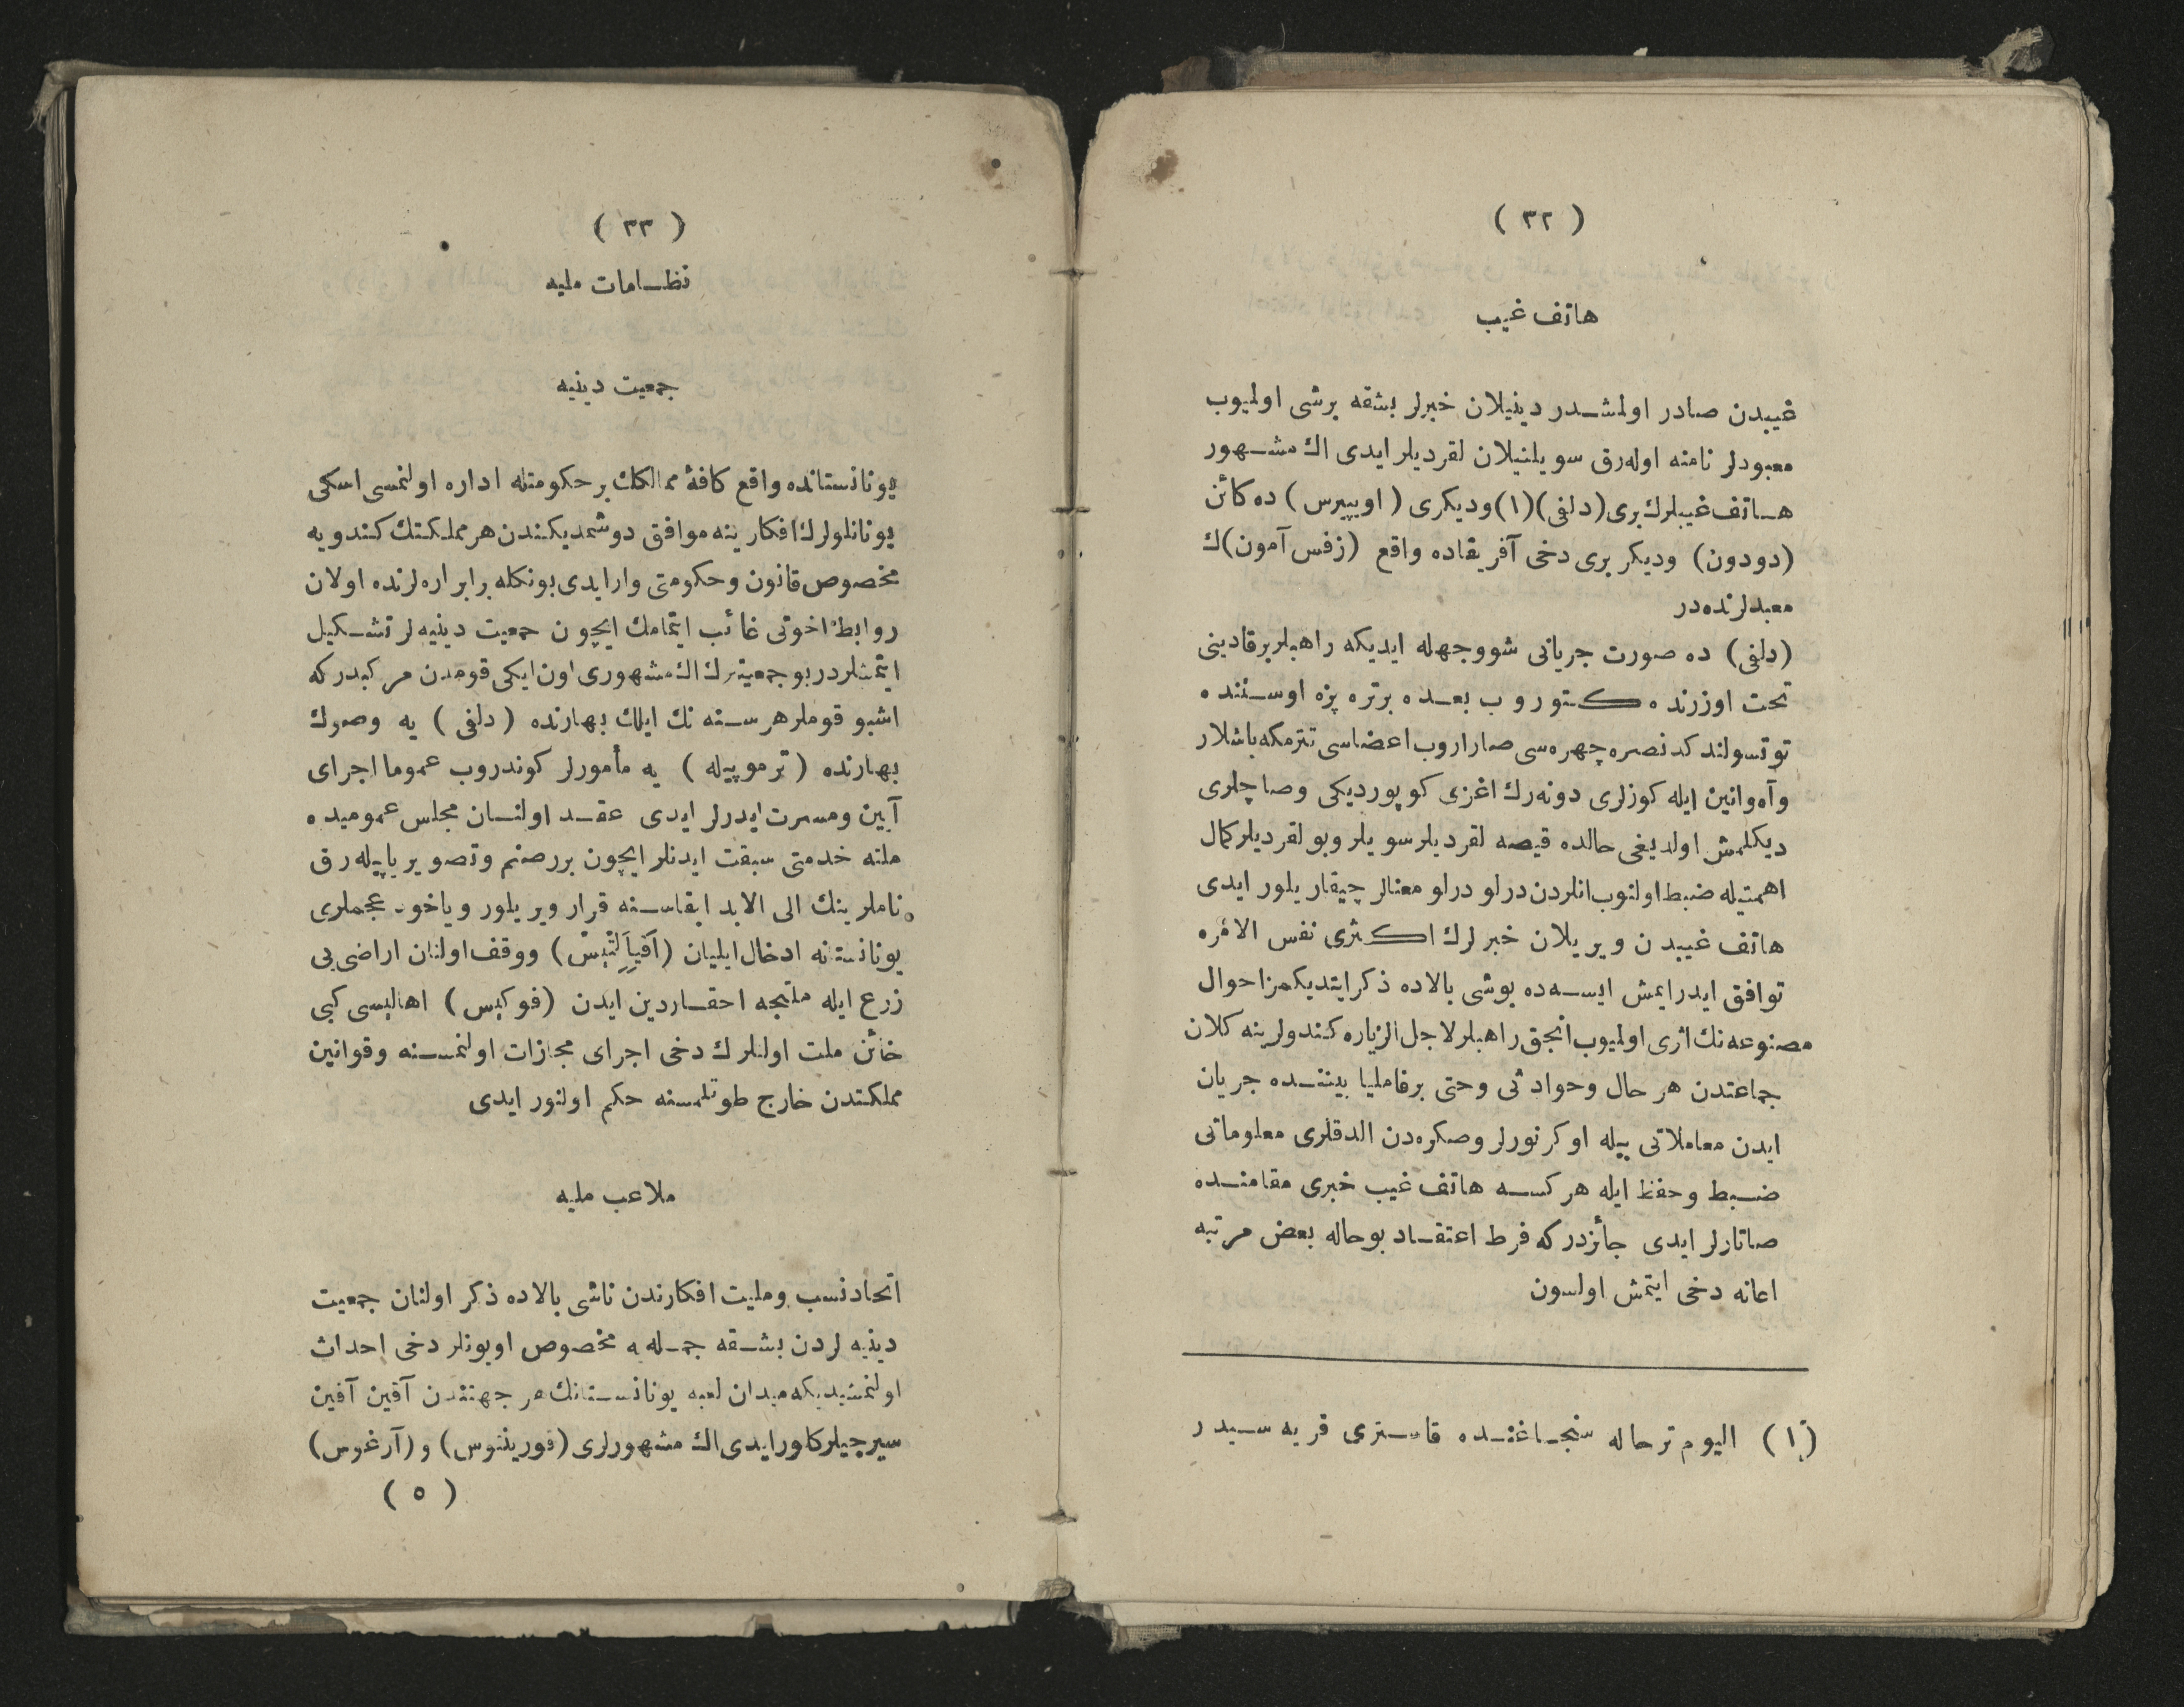 ( ٣٢ )
هاتف غيب
غيبدن صادر اولمشدر دينيلان خبرلر بشقه برشى اولميوب
معبودلر نامنه اوله‌رق سويلنيلان لقرديلر ايدى اك مشهور
هاتف غيبلرك برى (دلفى) (١) وديكرى (اوبيپرس) ده كائن
(دودون) وديكر برى دخى آفريقاده واقع (زفس آمون) ك
معبدلرنده‌در
(دلفى) ده صورت جريانى شووجهله ايديكه راهبلر برقادينى
تحت اوزرنده كتوروب بعده برتره پزه اوستنده
توتسولندكدنصره چهره‌سى صاراروب اعضاسى تترمكه باشلار
وآه‌وانين ايله كوزلرى دونه‌رك اغزى كوپورديكى وصاچلرى
ديكلمش اولديغى حالده قيصه لقرديلر سويلر وبو لقرديلر كمال
اهميتله ضبط اولنوب انلردن درلو درلو معنالر چيقاريلور ايدى
هاتف غيبدن ويريلان خبرلرك اكثرى نفس الامره
توافق ايدرايمش ايسه‌ده بوشى بالاده ذكر ايتديكمز احوال
مصنوعه‌نك اثرى اولميوب انجق راهبلر لاجل الزياره كندولرينه كلان
جماعتدن هر حال وحوادثى وحتى برفامليا بيننده جريان
ايدن معاملاتى بيله اوكرنورلر وصكره‌دن الدقلرى معلوماتى
ضبط وحفظ ايله هركسه هاتف غيب خبرى مقامنده
صاتارلر ايدى جائزدركه فرط اعتقاد بوحاله بعض مرتبه
اعانه دخى ايتمش اولسون
(١) اليوم ترحاله سنجاغنده قاسترى قريه سيدر
( ٣٣ )
نظامات مليه
جمعيت دينيه
يونانستانده واقع كافهٔ ممالكك برحكومتله اداره اولنمسى اسكى
يونانلولرك افكارينه موافق دوشمديكندن هر مملكتك كندويه
مخصوص قانون وحكومتى وارايدى بونكله برابر اره‌لرنده اولان
روابط اخوتى غائب ايتمامك ايچون جمعيت دينيه لر تشكيل
ايتمشلردر بو جمعيتلرك اك مشهورى اون ايكى قومدن مركبدركه
اشبو قوملر هر سنه نك ايلك بهارنده (دلفى) يه وصوك
بهارنده (ترموپيله) يه مأمورلر كوندروب عموما اجراى
آيين ومسرت ايدرلر ايدى عقد اولنان مجلس عموميده
ملته خدمتى سبقت ايدنلر ايچون بررصنم وتصوير ياپيله‌رق
ناملرينك الى الابد ابقاسنه قرار ويريلور وياخود عجملرى
يونانستانه ادخال ايليان (آفيالتيس) ووقف اولنان اراضى يى
زرع ايله ملتجه احقاردين ايدن (فوكيس) اهاليسى كبى
خائن ملت اولنلرك دخى اجراى مجازات اولنمسنه وقوانين
مملكتدن خارج طوتلمسنه حكم اولنور ايدى
ملاعب مليه
اتحاد نسب ومليت افكارندن ناشى بالاده ذكر اولنان جمعيت
دينيه لردن بشقه جمله يه مخصوص اويونلر دخى احداث
اولنمشيديكه ميدان لعبه يونانستانك هر جهتندن آقين آقين
سيرجيلر كلور ايدى اك مشهورلرى (قورينتوس) و (آرغوس)
( ٥ )